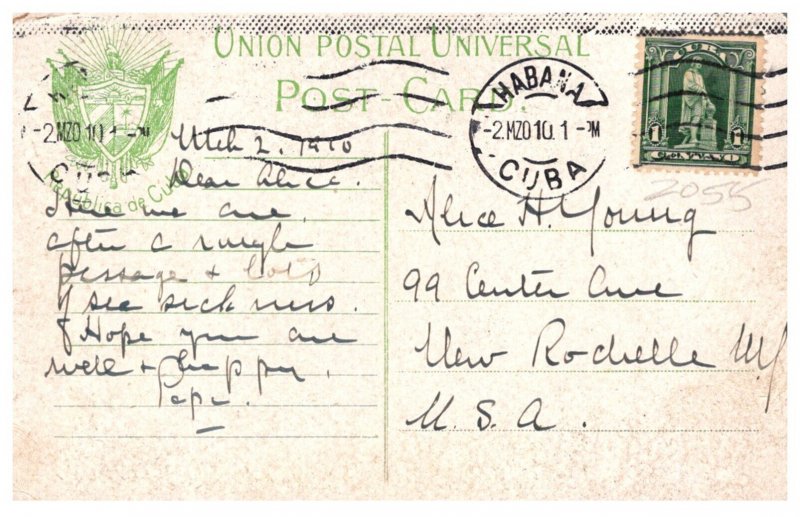 UNION POSTAL UNIVERSAL
POST-CARD.
HABANA
-2.MZO.10.1-M
CUBA
-2.MZO.10.1-M
CUBA
1 1
República de Cuba
Mch 2. 1910
Dear Alice.
Here we are
after a rough
passage + lots
of sea sickness.
Hope you are
well + happy.
Papa.
2055
Alice H. Young
99 Center Ave
New Rochelle NY
U.S.A.